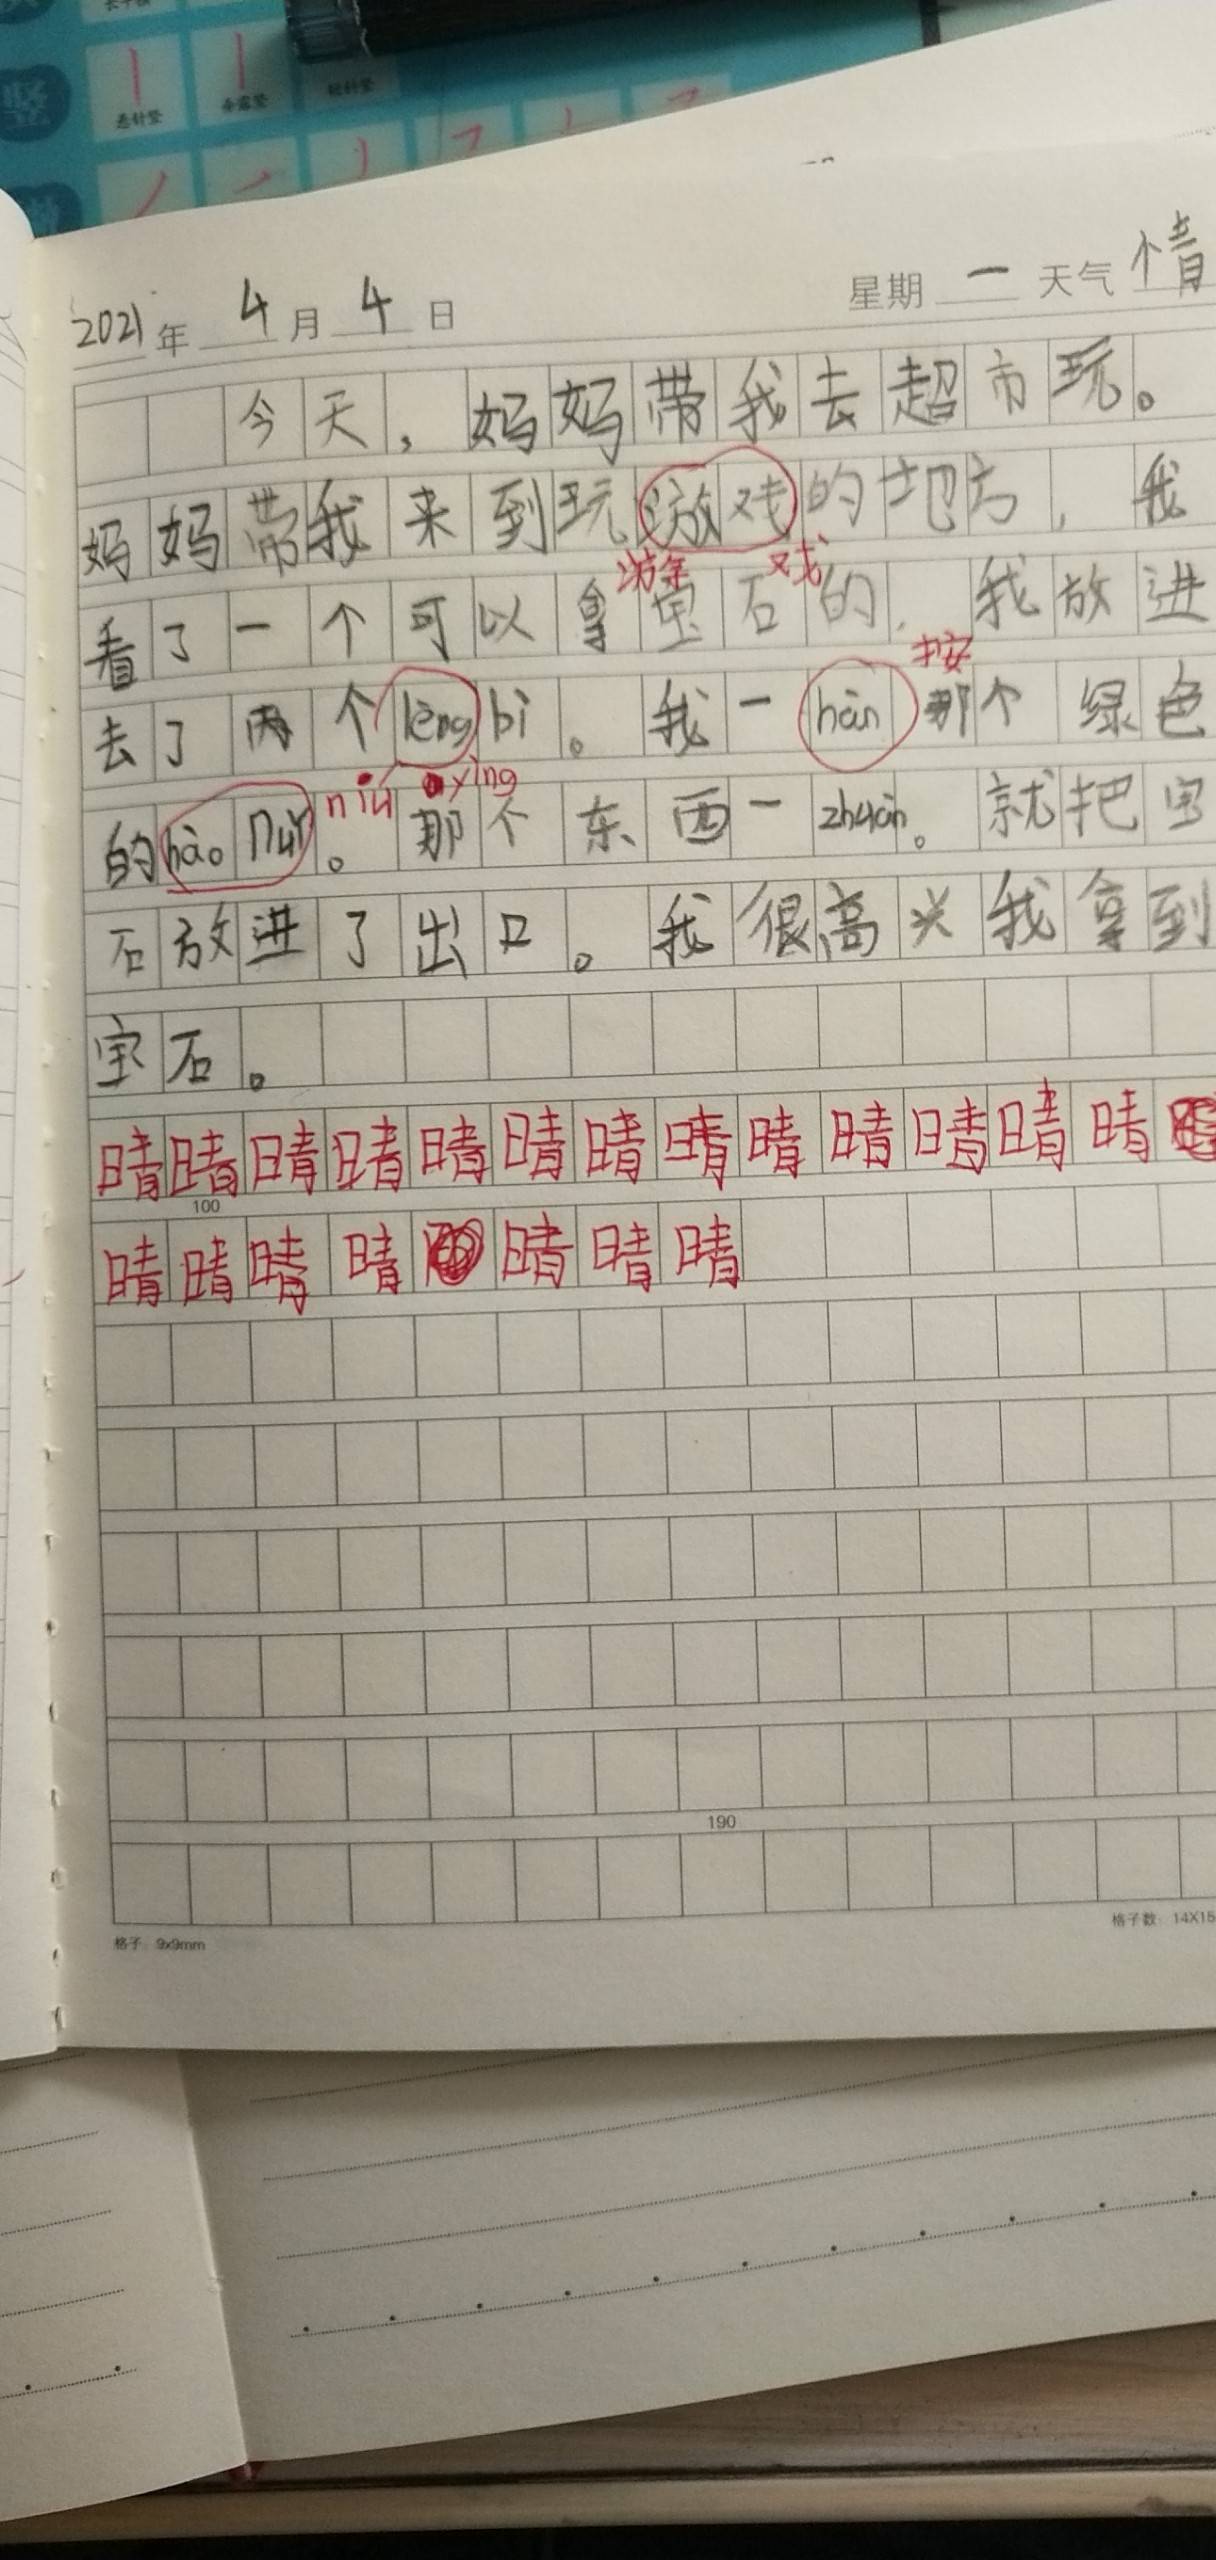 悬针竖 垂露竖
2021年 4月 4日 星期 一 天气 情
今天，妈妈带我去超市玩。
妈妈带我来到玩游戏的地方，我
游 戏
看了一个可以拿宝石的，我放进
按
去了两个lèng bì。我一hàn那个绿色
niǔ yìng
的hào nuǐ。那个东西一zhuàn。就把宝
石放进了出口。我很高兴我拿到
宝石。
晴晴晴晴晴晴晴晴晴晴晴晴晴
100
晴晴晴晴晴晴晴
190
格子：9x9mm 格子数：14X15